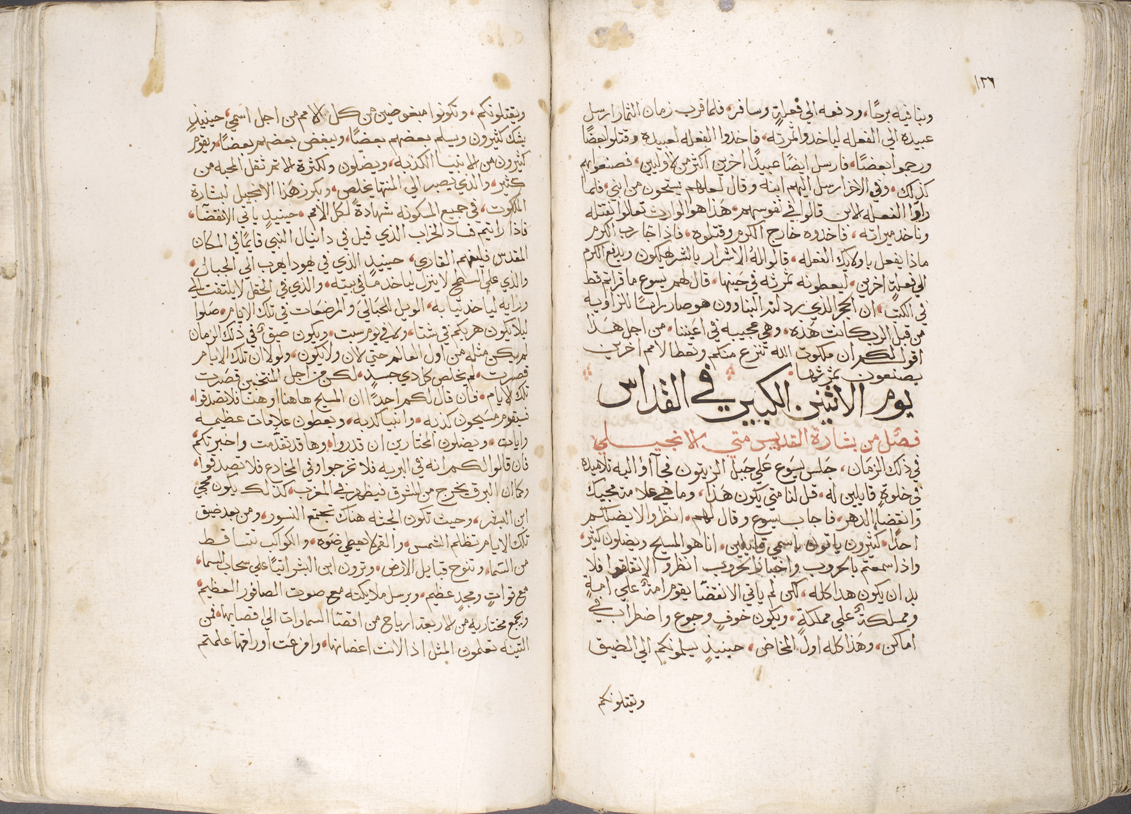 ١٣٦
وبنا فيه برجًا، ودفعه الى فعلةٍ وسافر، فلما قرب زمان الثمار ارسل
عبيده الى الفعله لياخدوا ثمرته، فاخدوا الفعله لعبيده وقتلوا بعضًا
ورجموا بعضًا، فارسل ايضًا عبيدًا اخرين اكثر من الاولين، فصنعوا بهم
كذلك، وفي الاخر ارسل اليهم ابنه وقال لعلهم يستحون من ابني، فلما
راوا الفعله الابن قالوا في نفوسهم، هذا هو الوارث تعالوا نقتله
وناخد ميراثه، فاخدوه خارج الكرم وقتلوه، فاذا جا رب الكرم
ماذا يفعل باوليك الفعله، قالوا له الاشرار بالشر يهلكهم ويدفع الكرم
الى فعلةٍ اخرين، ليعطونه ثمرته في حينها، قال لهم يسوع ما قراتم قط
في الكتب ان الحجر الذي ردلته البناوون هو صار راسًا للزاوية
من قبل الرب كانت هذه، وهي عجيبه في اعيننا، من اجل هذا
اقول لكم ان ملكوت الله تنزع منكم وتعطا لامم اخرين
يصنعون ثمرتها
يوم الاثنين الكبير في القداس
فصل من بشارة القديس متي الانجيلي
في ذلك الزمان، جلس يسوع علي جبل الزيتون فجآوا اليه تلاميده
في خلوةٍ قايلين له، قل لنا متي يكون هذا، وما هي علامة مجيك
وانقضا الدهر، فاجاب يسوع وقال لهم، انظروا لا يضلكم
احدًا، كثيرون ياتون باسمي قايلين، انا هو المسيح ويضلون كثير،
واذا سمعتم بالحروب واخبار الحروب انظروا لا تقلقوا فلا
بد ان يكون هدا كله، لكن لم ياتي الانقضا، يقوم امة علي امةٍ
ومملكة علي مملكةٍ، ويكون خوف وجوع واضطراب في
اماكن، وهذا كله اول المخاض، حينيدٍ يسلونكم الى الضيق
ويقتلونكم
ويقتلونكم، وتكونوا مبغوضين من كل الامم من اجل اسمي، حينيدٍ
يشك كثيرون ويسلم بعضهم بعضًا، ويبغض بعضهم بعضًا، ويقوم
كثيرون من الانبيا الكدبه، ويضلون ولكثرة الاثم تقل المحبه من
كثير، والذي يصبر الي المنتها يخلص، ويكرز هدا الانجيل لبشارة
الملكوت، في جميع المسكونه شهادة لكل الامم، حينيدٍ ياتي الانقضا،
فاذا رايتم فساد الخراب الذي قيل في دانيال النبي قايمًا في المكان
المقدس فليفهم القاري، حينيدٍ الذي في يهودا يهرب الي الجبال،
والذي علي السطح لا ينزل لياخد ما في بيته، والذي في الحقل لا يلتفت الي
ورايه لياخد ثيابه، الويل للحبالي والمرضعات في تلك الايام، صلوا
ليلا يكون هربكم في شتا، ولا في يوم سبت، ويكون ضيق في ذلك الزمان
لم يكن مثله من اول العالم حتي الان ولا يكون، ولولا ان تلك الايام
قصرت، لم يخلص كل دي جسدٍ، لكن من اجل المنتخبين قصرت
تلك الايام، فان قال لكم احدًا ان المسيح هاهنا او هنا فلا تصدقوا،
فسيقوم مسيحون كدبه، وانبيا كدبه، ويعطون علامات عظيمه
وايات، ويضلون المختارين ان قدروا، وها قد تقدمت واخبرتكم،
فان قالوا لكم انه في البريه فلا تخرجوا، او في المخادع فلا تصدقوا،
وكما ان البرق يخرج من المشرق فيظهر في المغرب، كذلك يكون مجي
ابن البشر، وحيث تكون الجثه هناك تجتمع النسور، ومن بعد ضيق
تلك الايام تظلم الشمس، والقمر لا يعطي ضوه، والكواكب تتساقط
من السما، وتنوح قبايل الارض، ويرون ابن البشر اتيًا علي سحاب السما،
مع قواتٍ ومجدٍ عظيم، ويرسل ملايكته مع صوت الصافور العظيم
ويجمع مختاريه من الاربعة ارياح من اقصا السماوات الي اقصايها، فمن
التينه تعلمون المثل اذا لانت اغصانها، وافرعت اوراقها علمتم